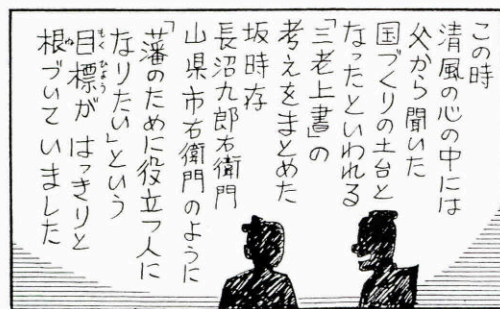 この時
清風の心の中には
父から聞いた
国づくりの土台と
なったといわれる
「三老上書」の
考えをまとめた
坂時存
長沼九郎右衛門
山県市右衛門のように
「藩のために役立つ人に
なりたい」という
目標が はっきりと
根づいていました
もくひょう